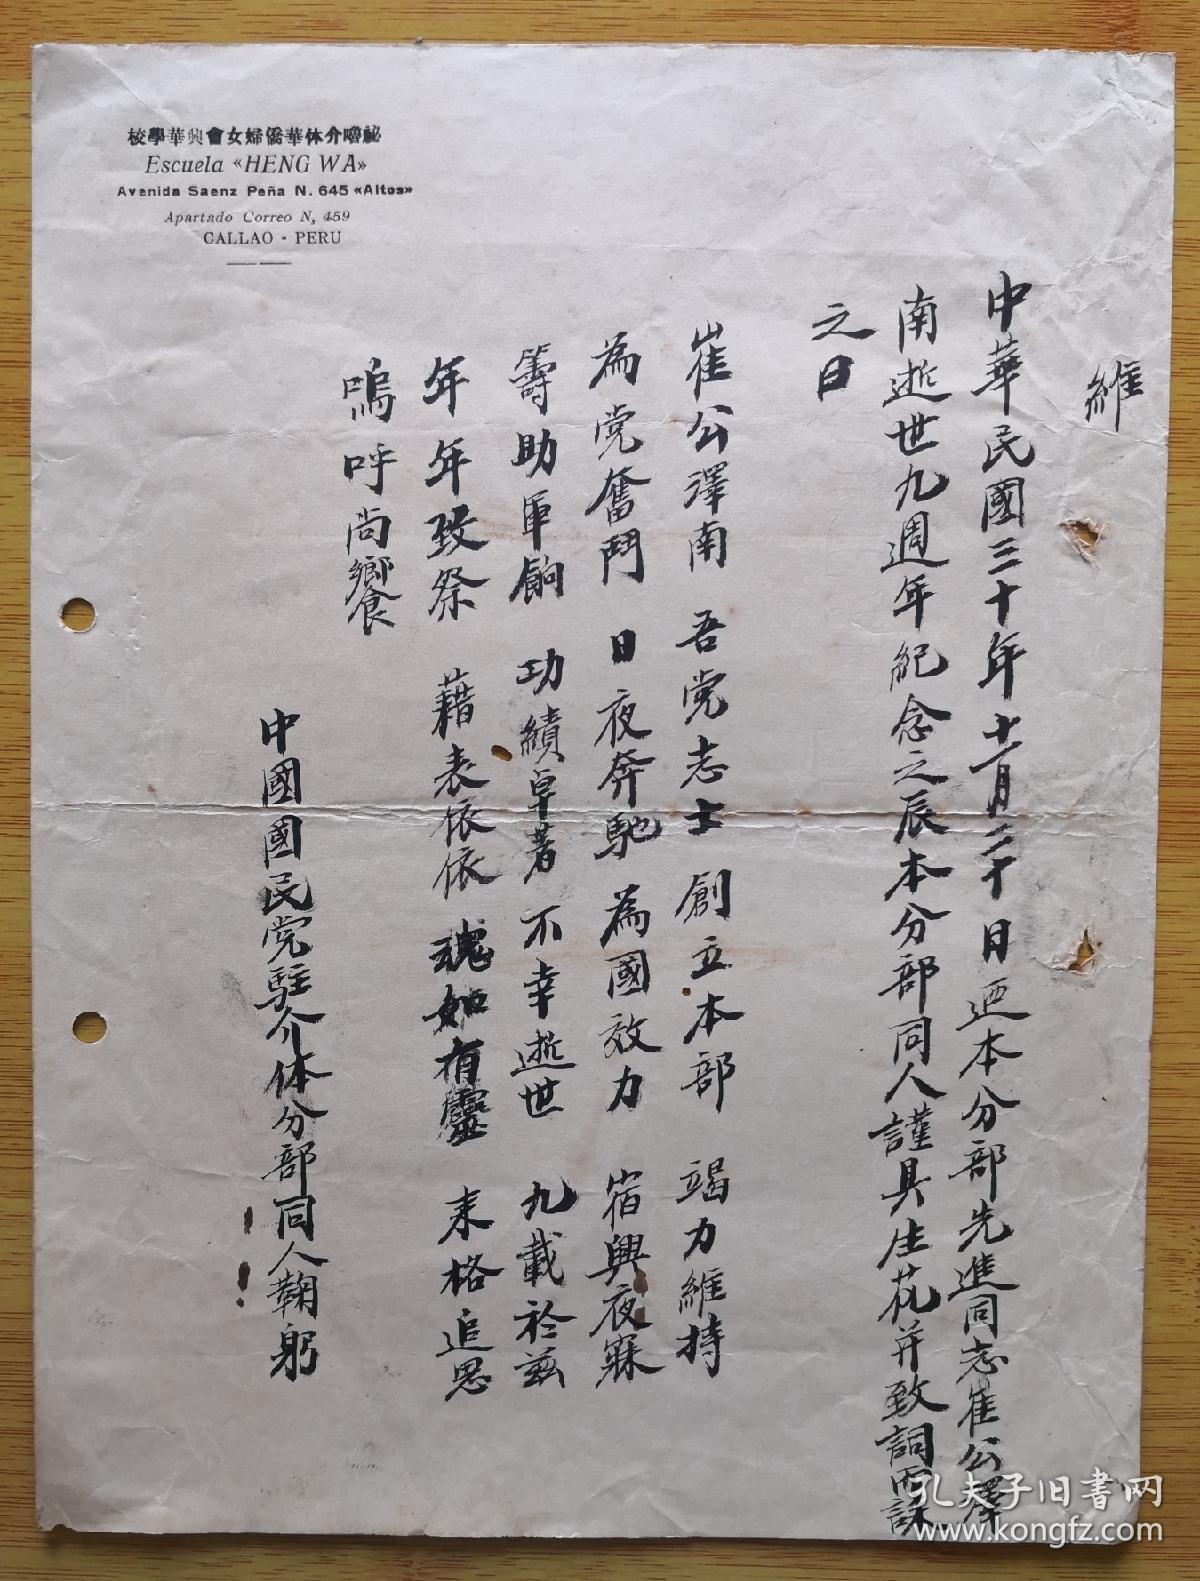 校學華興會女婦僑華休介嚕祕
Escuela «HENG WA»
Avenida Saenz Peña N. 645 «Altos»
Apartado Correo N, 459
CALLAO - PERU
維
中華民國三十年十一月二十日迺本分部先進同志崔公澤
南逝世九週年紀念之辰本分部同人謹具生花并致詞而誄
之曰
崔公澤南 吾党志士 創立本部 竭力維持
為党奮鬥 日夜奔馳 為國效力 宿興夜寐
籌助軍餉 功績卓著 不幸逝世 九載於茲
年年致祭 藉表依依 魂如有靈 來格追思
嗚呼尚饗
中國國民党駐介休分部同人鞠躬
孔夫子旧书网
www.kongfz.com